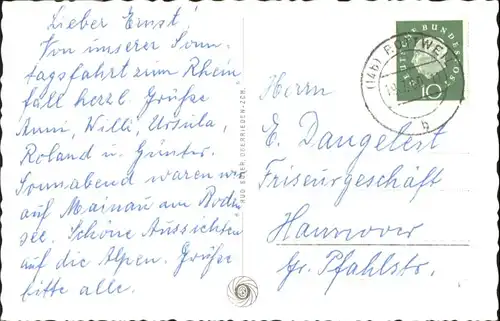 Lieber Ernst!
Von unserer Sonn-
tagsfahrt zum Rhein
fall herzl. Grüße
Anni, Willi, Ursula,
Roland u. Günter.
Sonnabend waren wir
auf Mainau am Boden
see. Schöne Aussichten
auf die Alpen. Grüße
bitte alle.
DEUTSCHE BUNDESPOST
10
(14b) ROTTWEIL
b
Herrn
E. Dangelest
Friseurgeschäft
Hannover
Gr. Pfahlstr.